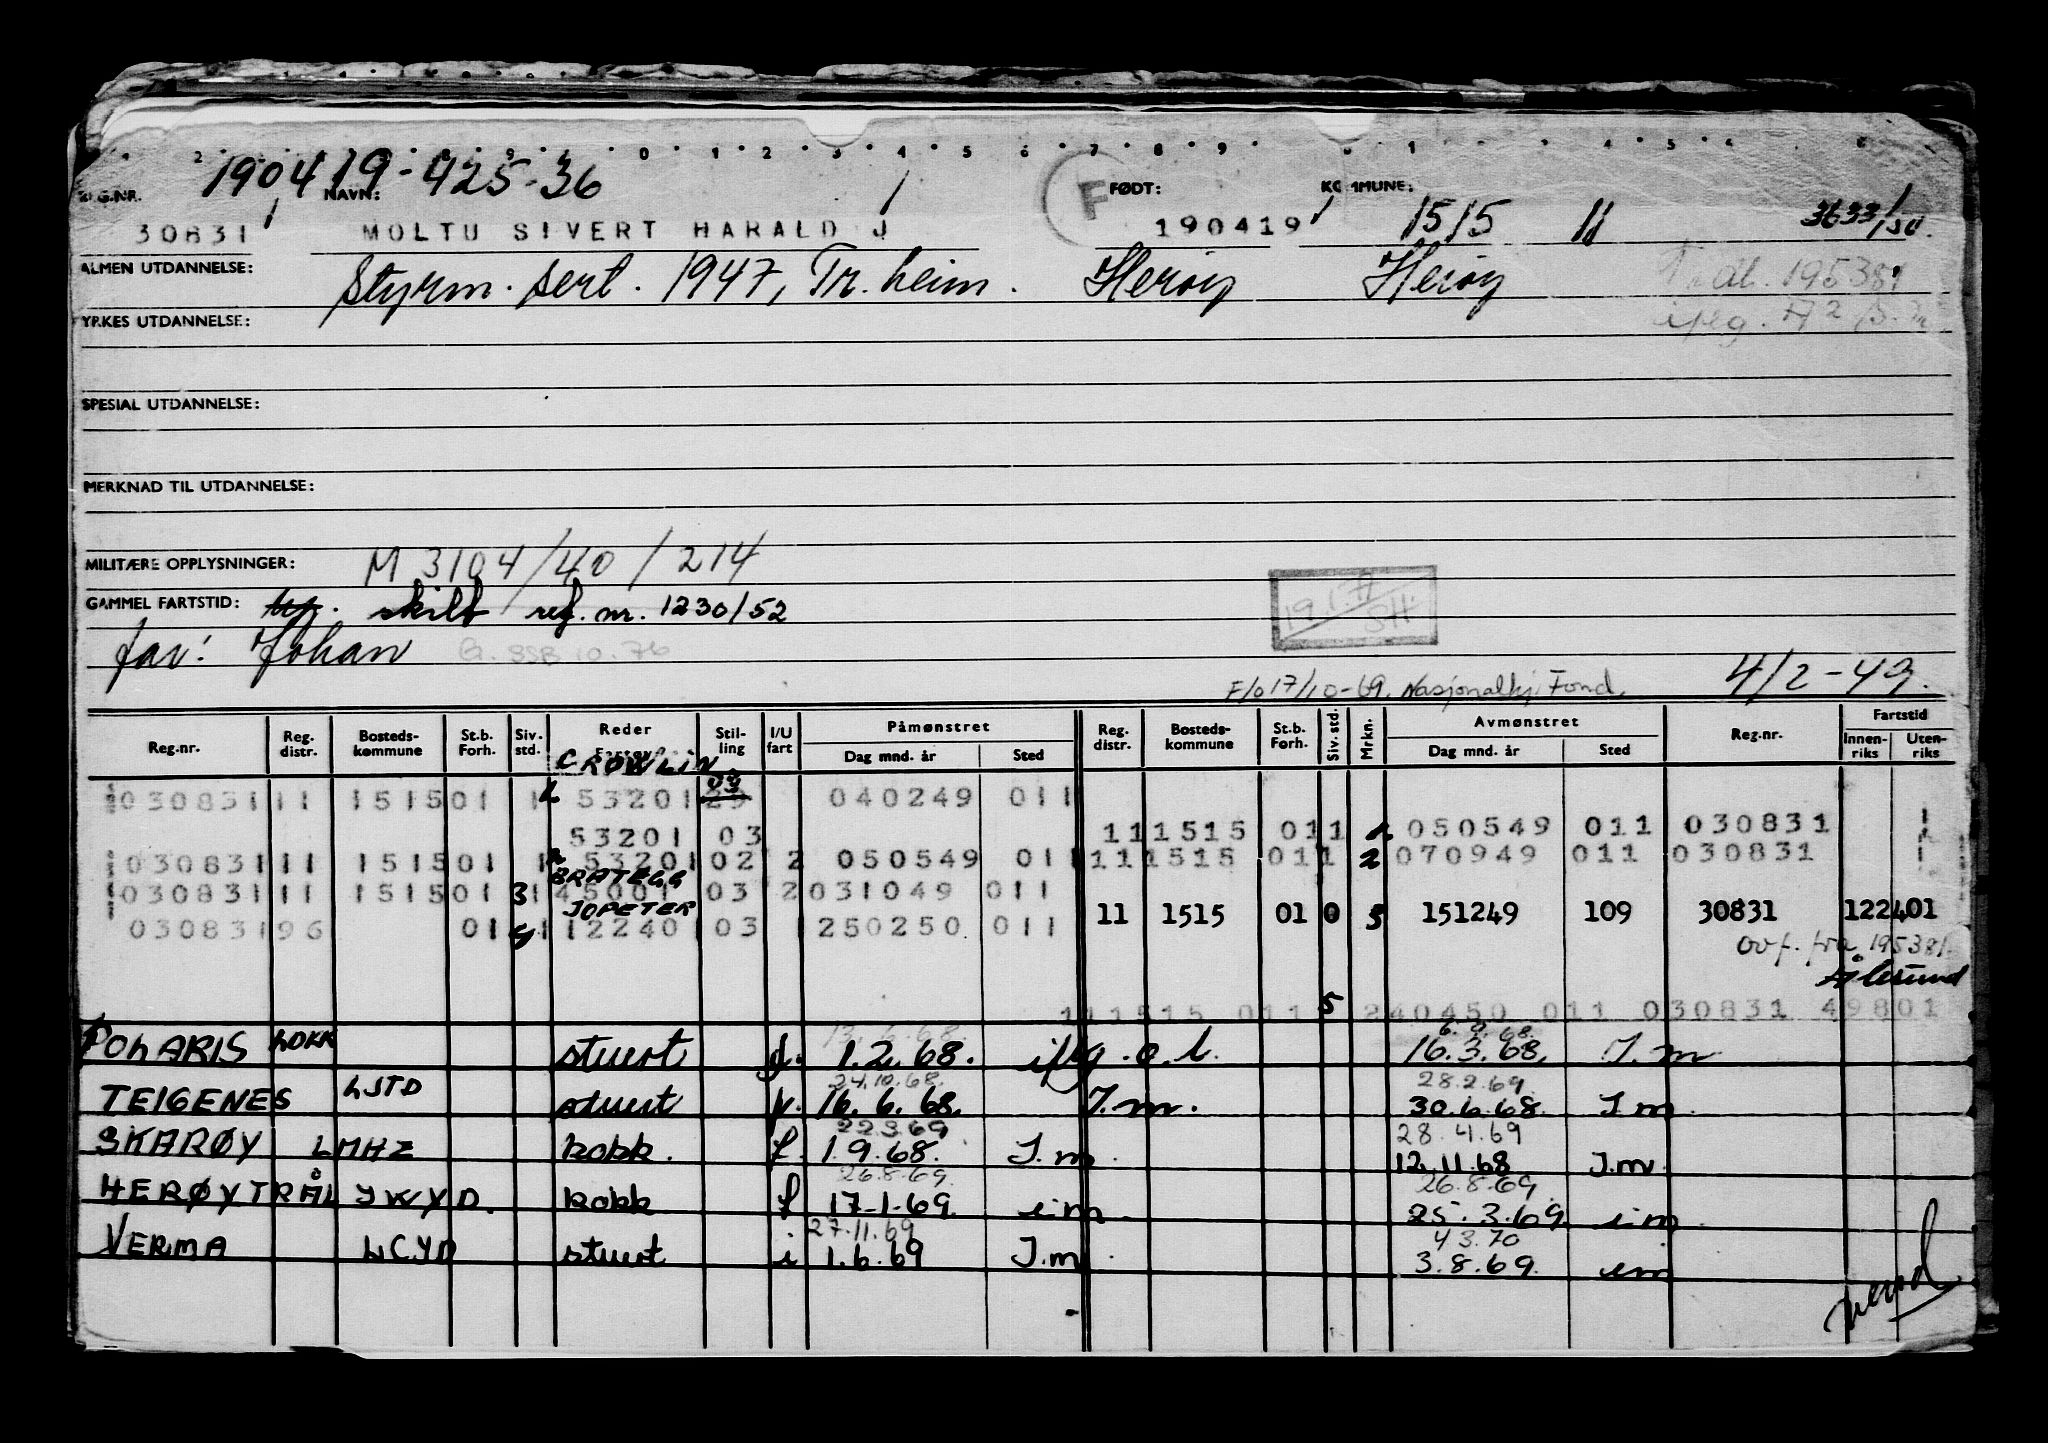 190419-425-36
REG.NR. NAVN: F FØDT: KOMMUNE:
30831 MOLTU SIVERT HARALD J 190419 1515 11 3633/50.
ALMEN UTDANNELSE: Styrm. sert. 1947, Tr.heim. Herøy Herøy 195381
YRKES UTDANNELSE:
SPESIAL UTDANNELSE:
MERKNAD TIL UTDANNELSE:
MILITÆRE OPPLYSNINGER: M 3104/40/214
GAMMEL FARTSTID: skilt ref. nr. 1230/52
far: Johan G. SSB 10.76
F/o 17/10-69, Nasjonalhj. Fond. 4/2-49.
Reg.nr. Reg. distr. Bosteds-kommune St.b. Forh. Siv. std. Reder Stil-ling I/U fart Påmønstret Dag mnd. år Sted Reg. distr. Bosteds-kommune St.b. Forh. Siv. std. Mrkn. Avmønstret Dag mnd. år Sted Reg.nr. Fartstid Innen-riks Uten-riks
CROWLIN
030831 11 1515 01 1 53201 03 040249 011
53201 03 11 1515 01 1 050549 011 030831
030831 11 1515 01 1 53201 02 2 050549 011 11 1515 01 1 2 070949 011 030831
BRATEGG
030831 11 1515 01 3 1 45001 03 2 031049 011
JOPETER 11 1515 01 0 5 151249 109 30831 122401
030831 96 01 1 12240 03 250250 011
ovf. fra 195381.
Ålesund
11 1515 011 5 240450 011 030831 49801
13.6.68. 6.9.68
POLARIS LDKK stuert 1.2.68. 16.3.68. I.m
24.10.68. 28.2.69.
TEIGENES LJTD stuert 16.6.68. I.m. 30.6.68. I m.
22.3.69 28.4.69
SKARØY LMHZ kokk. f. 1.9.68. I.m. 12.11.68 I.m.
26.8.69. 26.8.69
HERØYTRÅL JWYD. kokk f 17-1-69. i m. 25.3.69 i m.
27.11.69 4 3.70
VERMA LCYD stuert i 1.6.69 I.m. 3.8.69. i m